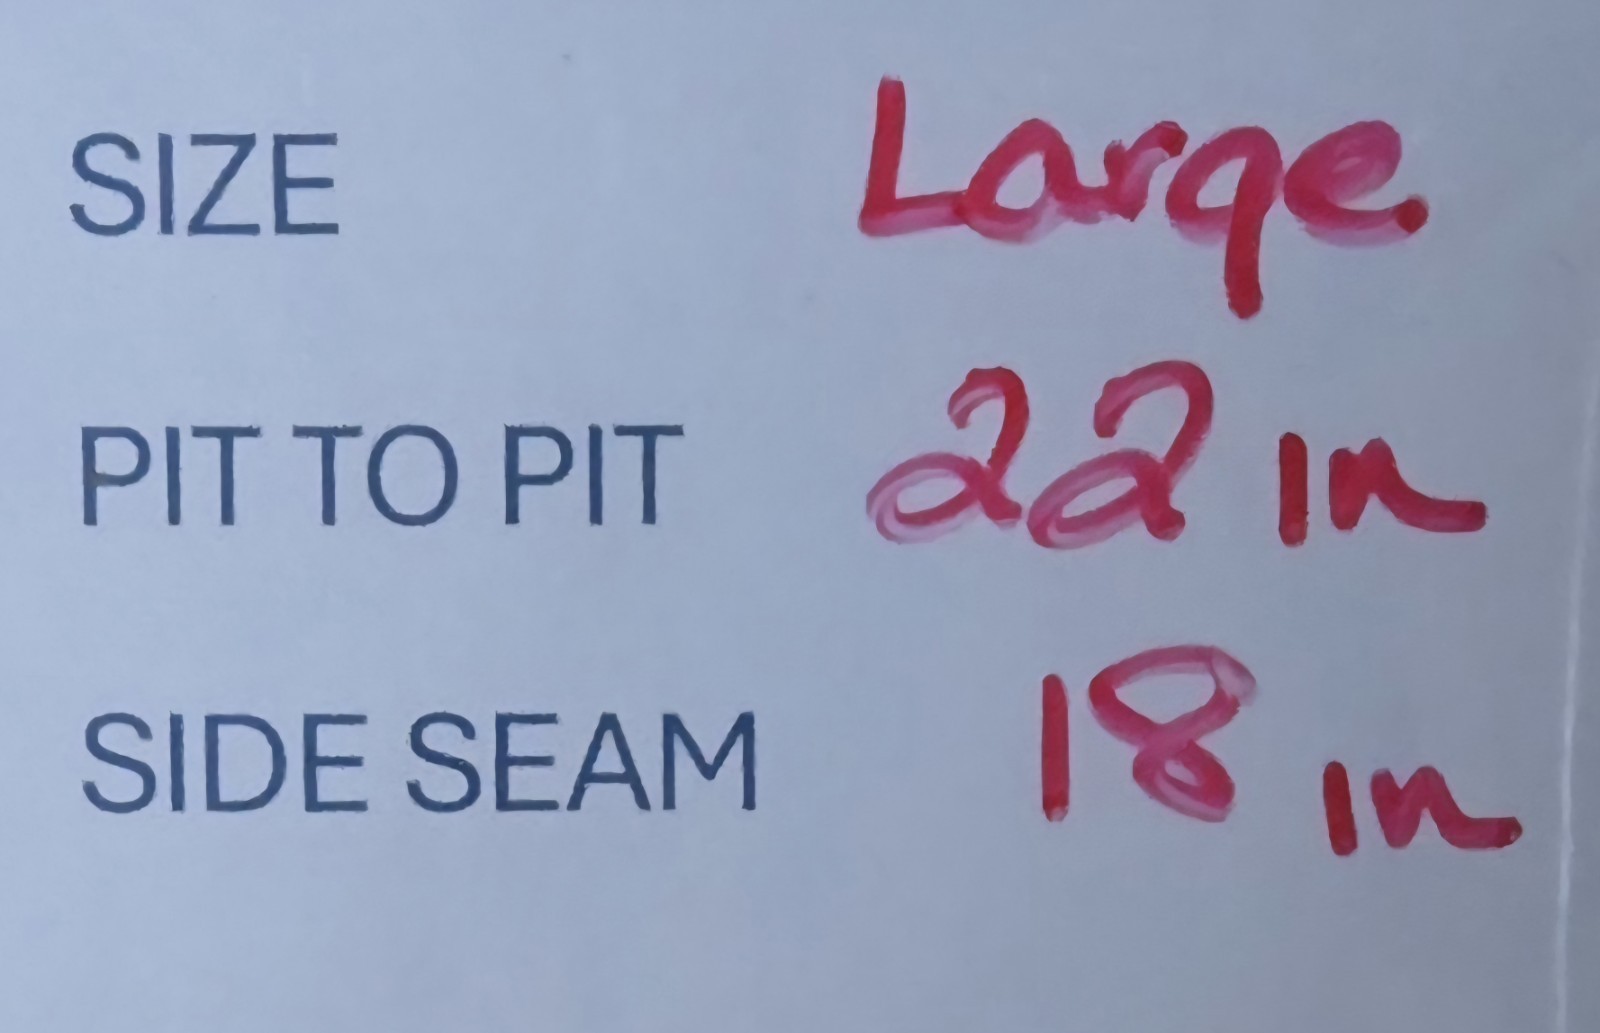 SIZE Large
PIT TO PIT 22 in
SIDE SEAM 18 in